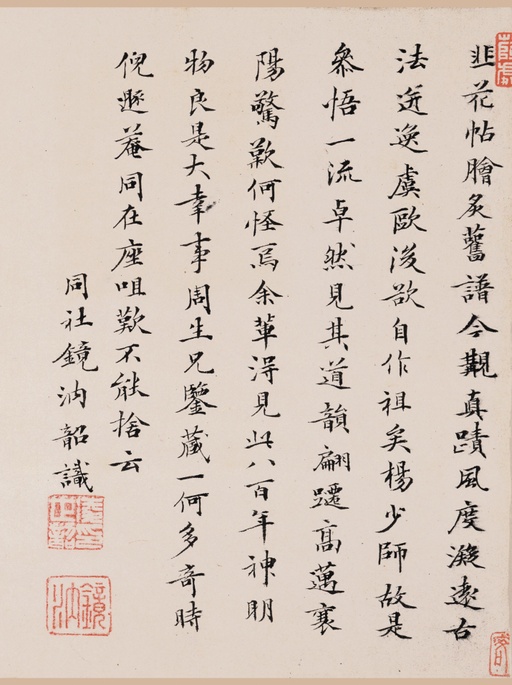 韭花帖膾炙舊譜今觀真蹟風度凝遠古
法迸逸虞歐後欲自作祖矣楊少師故是
叅悟一流卓然見其道韻翩躚高邁襄
陽驚歎何怪焉余輩得見此八百年神明
物良是大幸事周生兄鑒藏一何多奇時
倪遯菴同在座咀歎不能捨云
同社鏡汭韶識
鏡汭